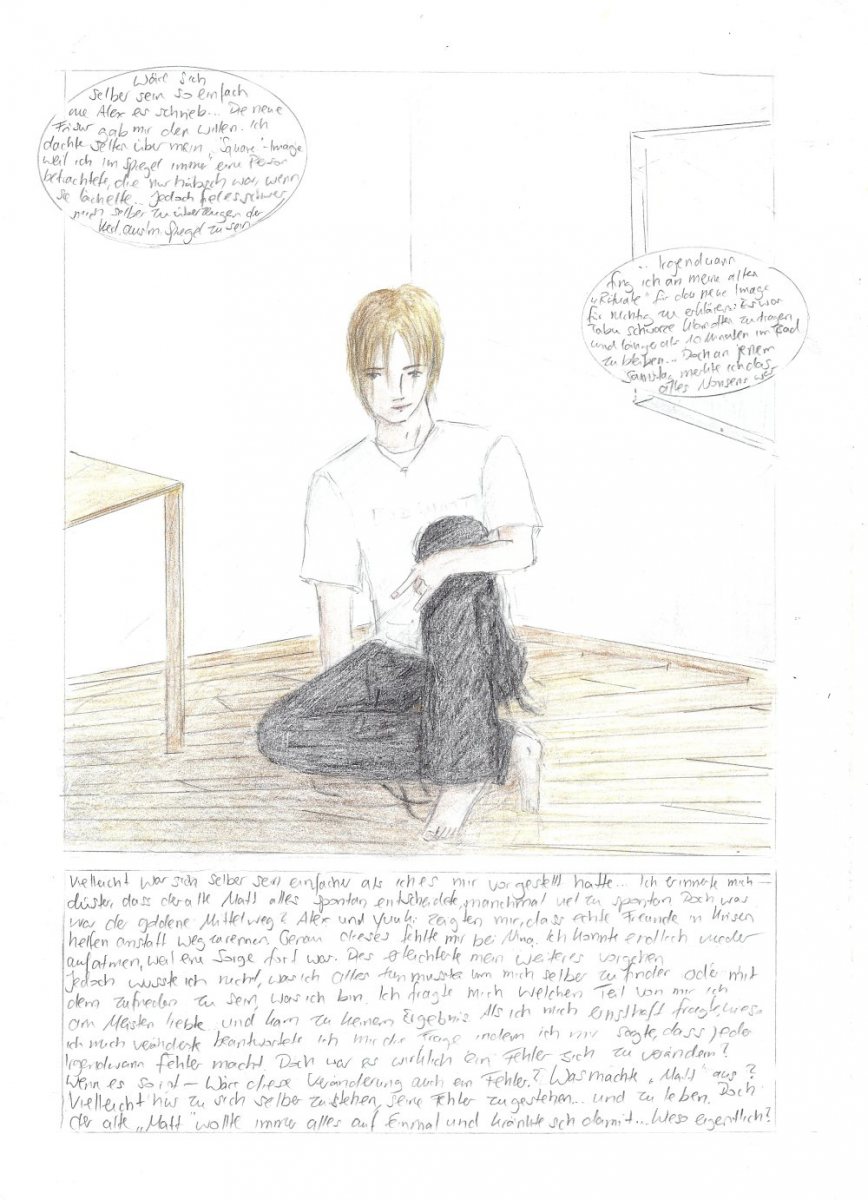 Wäre sich
selber sein so einfach
wie Alex es schrieb... Die neue
Frisur gab mir den Willen. Ich
dachte selten über mein "Square"-Image
weil ich im Spiegel immer eine Person
betrachtete, die nur hübsch war, wenn
sie lächelte... Jedoch fiel es schwer
mich selber zu überzeugen der
Kerl aus'm Spiegel zu sein
... Irgendwann
fing ich an meine alten
"Rituale" für das neue Image
für nichtig zu erklären: Es war
Tabu schwarze Klamotten zu tragen
und länger als 10 Minuten im Bad
zu bleiben... Doch an jenem
Samstag merkte ich das
alles Nonsens war
Vielleicht war sich selber sein einfacher als ich es mir vorgestellt hatte... Ich erinnerte mich
düster, dass der alte Matt alles spontan entscheidete, manchmal viel zu spontan. Doch was
war der goldene Mittelweg? Alex und Yuuki zeigten mir, dass echte Freunde in Krisen
helfen anstatt wegzurennen. Genau dieses fehlte mir bei Nina. Ich konnte endlich wieder
aufatmen, weil eine Sorge fort war. Dies erleichterte mein weiteres vorgehen
Jedoch wusste ich nicht, was ich alles tun musste um mich selber zu finden oder mit
dem zufrieden zu sein, was ich bin. Ich fragte mich welchen Teil von mir ich
am Meisten liebte und kam zu keinem Ergebnis. Als ich mich ernsthaft fragte, wieso
ich mich veränderte beantwortete ich mir die Frage indem ich mir sagte, dass jeder
Irgendwann Fehler macht. Doch war es wirklich ein Fehler sich zu verändern?
Wenn es so ist - Wäre diese Veränderung auch ein Fehler? Was machte "Matt" aus?
Vielleicht hiess zu sich selber zu stehen, seine Fehler zugestehen... und zu leben. Doch
der alte "Matt" wollte immer alles auf Einmal und kränkte sich damit... Wieso eigentlich?